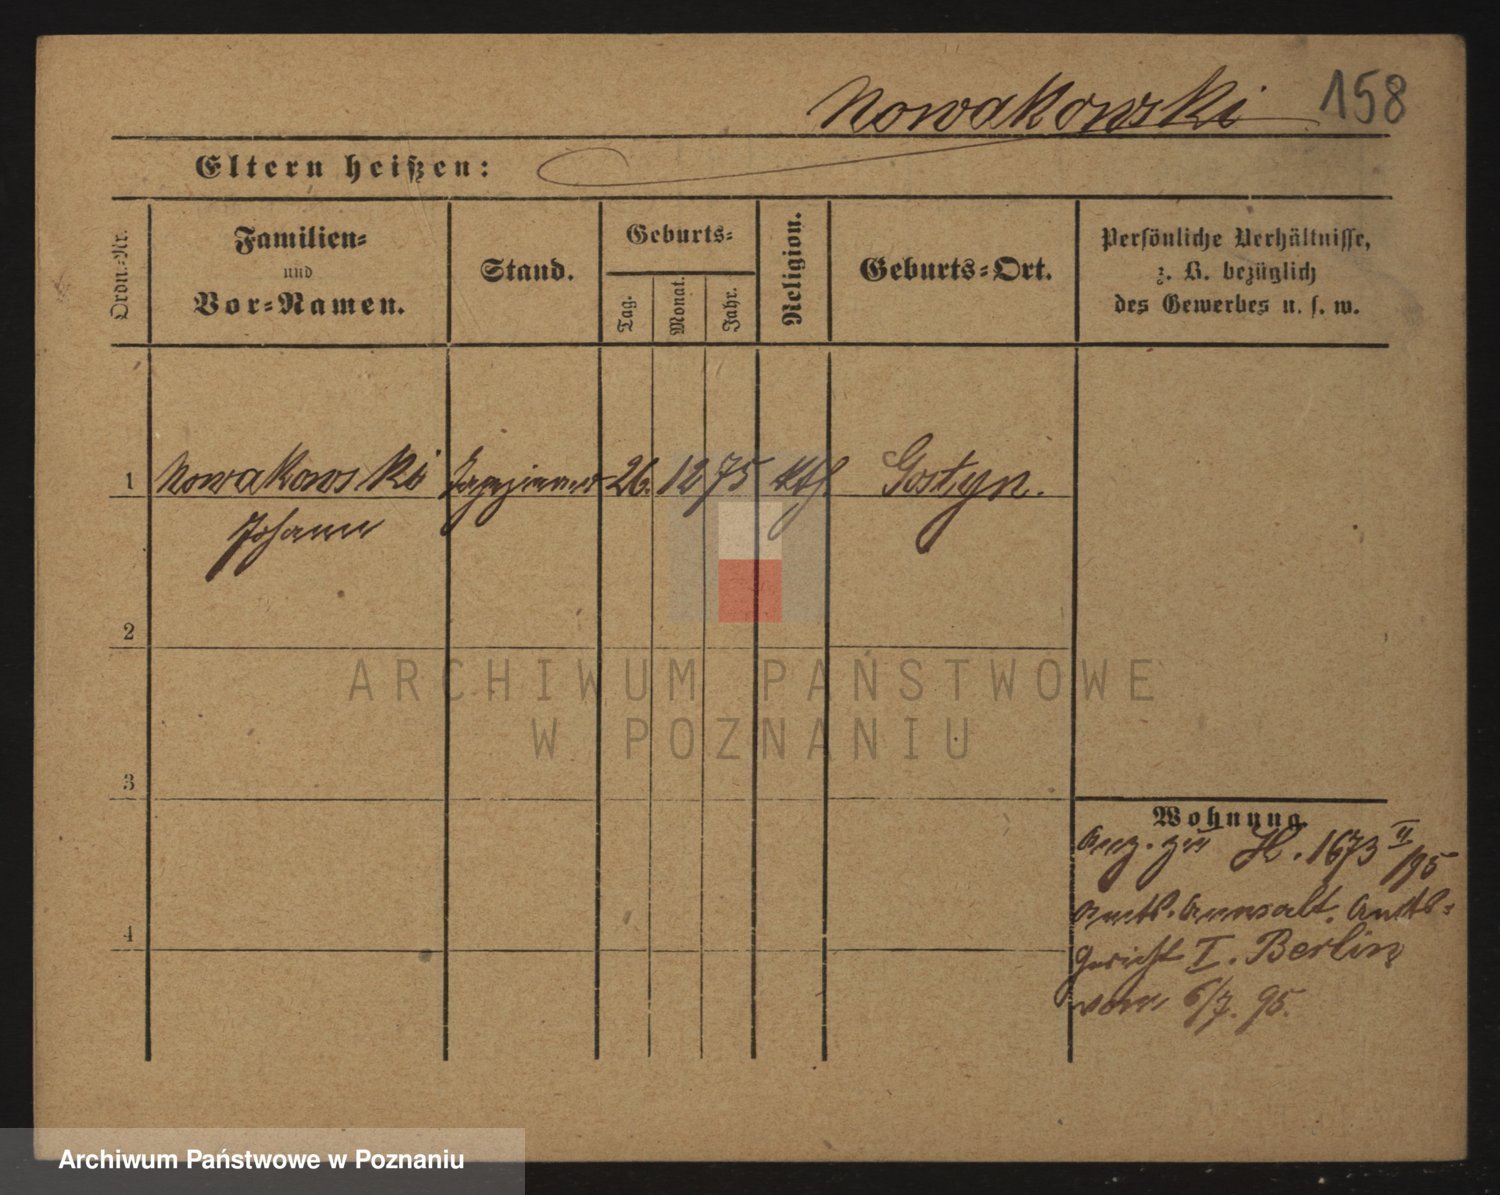 Nowakowski 158
Eltern heißen:
Ordn.-Nr.
Familien-
und
Vor-Namen.
Stand.
Geburts-
Tag.
Monat.
Jahr.
Religion.
Geburts-Ort.
Persönliche Verhältnisse,
z. B. bezüglich
des Gewerbes u. s. w.
1 Nowakowski 26. 12 75 kth. Gostyn.
Johann
2
3
4
Wohnung.
Anz. zu H. 1673 II/95
Amts-Anwalt. Amts-
gericht I. Berlin
vom 6/7. 95.
ARCHIWUM PAŃSTWOWE
W POZNANIU
Archiwum Państwowe w Poznaniu